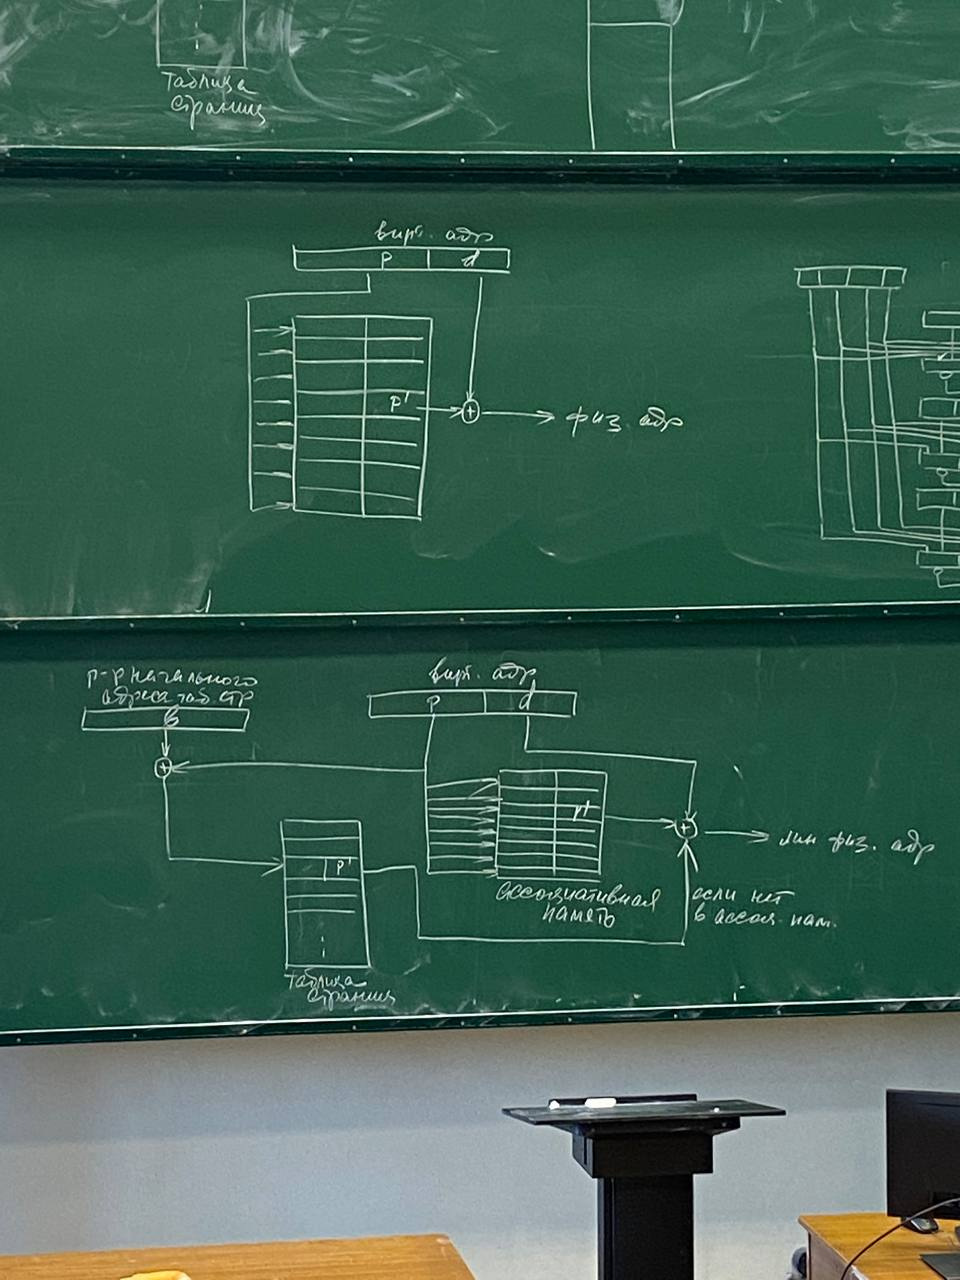 таблица
страниц
вирт. адр
p d
p'
+
физ. адр
р-р начального
адреса таб. стр
b
вирт. адр
p d
+
p'
+
лин физ. адр
p'
ассоциативная
память
если нет
в ассоц. пам.
таблица
страниц